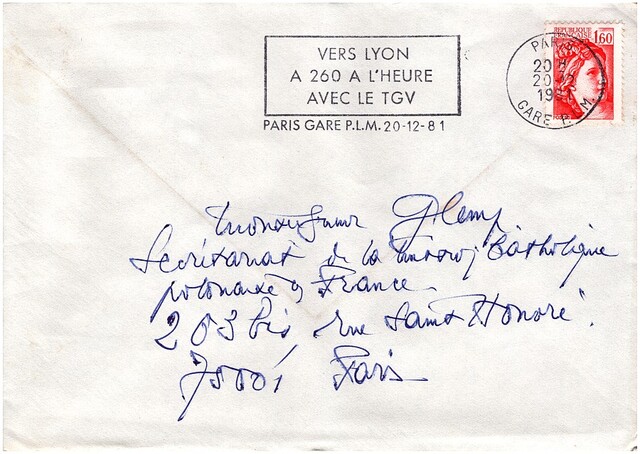 VERS LYON
A 260 A L'HEURE
AVEC LE TGV
PARIS GARE P.L.M. 20-12-81
REPUBLIQUE FRANÇAISE
1,60
PARIS
20 H
20-12
1981
GARE P. M.
Monseigneur Glemp
Secrétariat de la Catholique
polonaise France
203 bis, rue Saint Honoré
75001 Paris